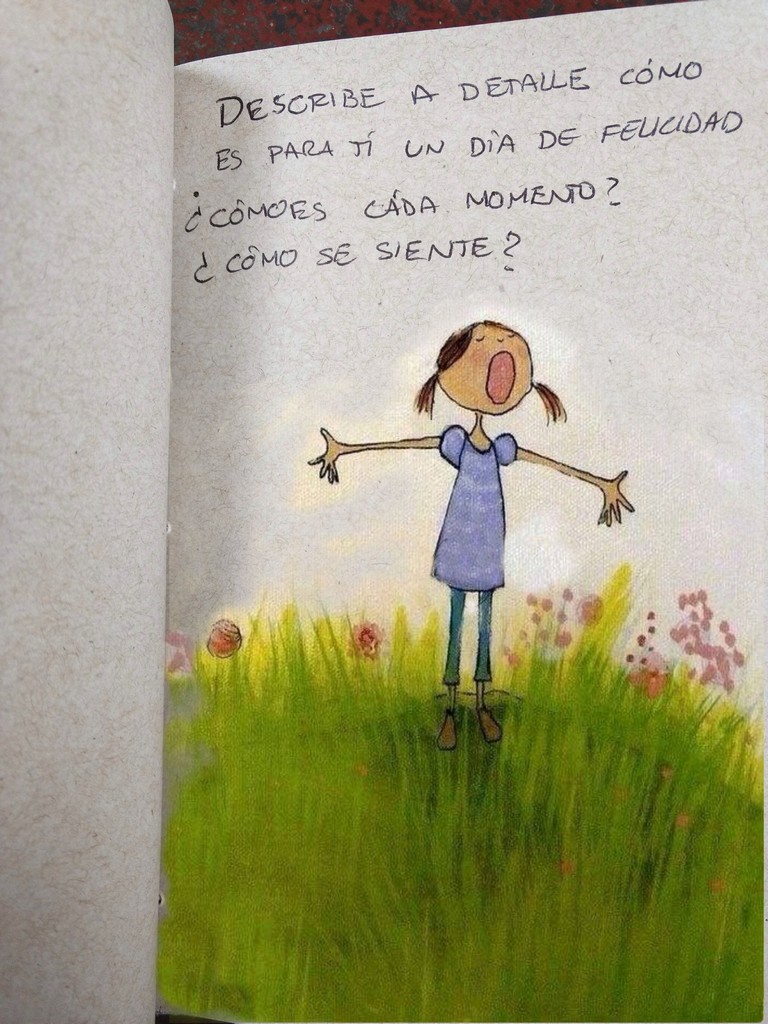 DESCRIBE A DETALLE CÓMO
ES PARA TÍ UN DÍA DE FELICIDAD
¿CÓMOES CÁDA MOMENTO?
¿CÓMO SE SIENTE?